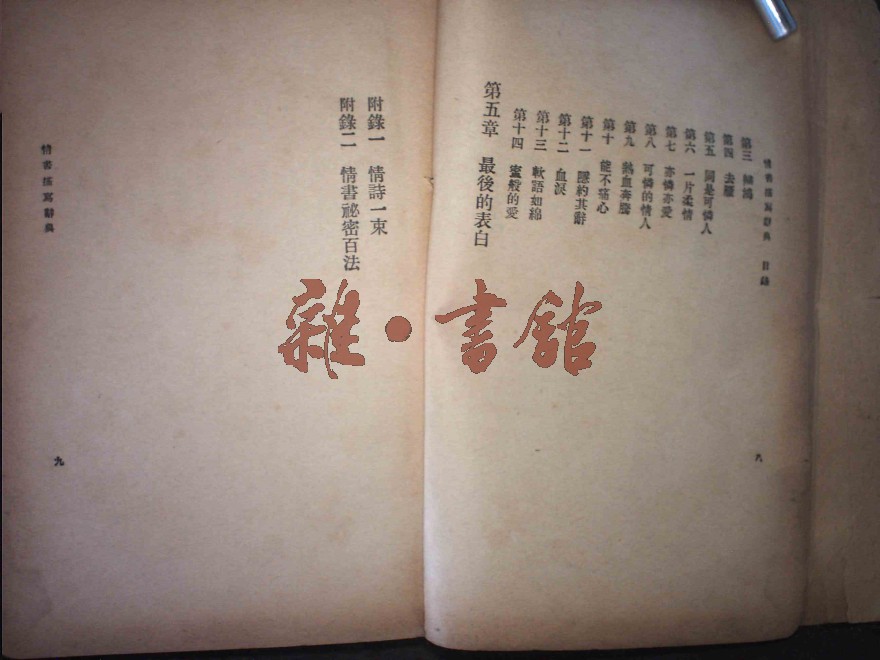 情書描寫辭典 目錄
第三
第四 去
第五 同是可憐人
第六 一片柔情
第七 亦憐亦愛
第八 可憐的情人
第九 熱血奔騰
第十 能不痛心
第十一 隱約其辭
第十二 血淚
第十三 軟語如綿
第十四 蜜般的愛
第五章 最後的表白
八
附錄一 情詩一束
附錄二 情書祕密百法
情書描寫辭典
九
雜·書館